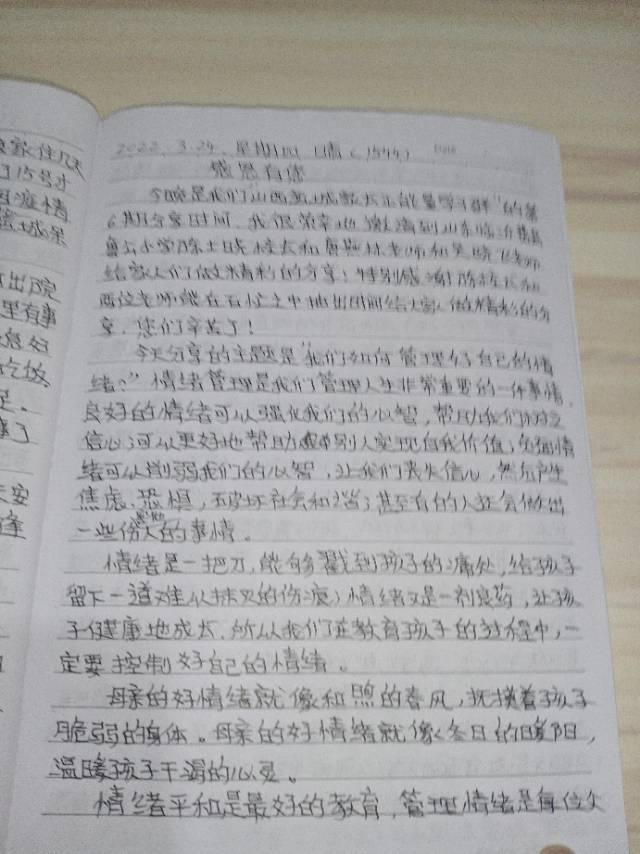 家住几天
15号才
疫情
成果
出院
里有事
很好
吃饭
足。
安
2022.3.24. 星期四 晴(1544)
感恩有你
今晚是我们"山西 成家长正能量学习群"的第
6期分享时间,我很荣幸地邀请到山东临沂
小学陈 晓校长和 林老师和吴晓飞老师
给家人们做精彩的分享!特别感谢陈校长和
两位老师能在百忙之中抽出时间给大家做精彩的分
享,您们辛苦了!
今天分享的主题是"我们如何管理好自己的情
绪?"情绪管理是我们管理人生非常重要的一件事情,
良好的情绪可以强化我们的心智,帮助我们树立
信心;可以更好地帮助 别人实现自我价值;负面情
绪可以削弱我们的心智,让我们丧失信心,然后产生
焦虑、恐惧,破坏社会和谐;甚至有的人还会做出
一些伤 人的事情。
情绪是一把刀,能够戳到孩子的痛处,给孩子
留下一道难以抹灭的伤痕;情绪又是一剂良药,让孩
子健康地成长。所以我们在教育孩子的过程中,一
定要控制好自己的情绪。
母亲的好情绪就像和煦的春风,抚摸着孩子
脆弱的身体。母亲的好情绪就像冬日的暖阳,
温暖孩子干渴的心灵。
情绪平和是最好的教育,管理情绪是每位父